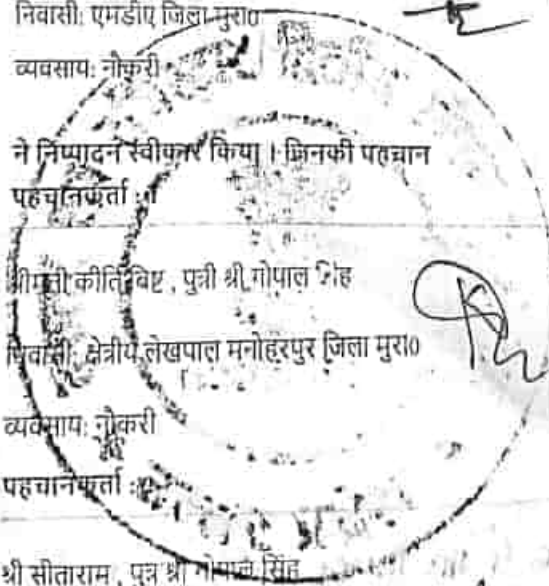 निवासी: एमडीए जिला मुरा0
व्यवसाय: नौकरी
ने निष्पादन स्वीकार किया । जिनकी पहचान
पहचानकर्ता : 1
श्रीमती कीर्ति विष्ट , पुत्री श्री गोपाल सिंह
निवासी: क्षेत्रीय लेखपाल मनोहरपुर जिला मुरा0
व्यवसाय: नौकरी
पहचानकर्ता :
श्री सीताराम , पुत्र श्री गोपाल सिंह